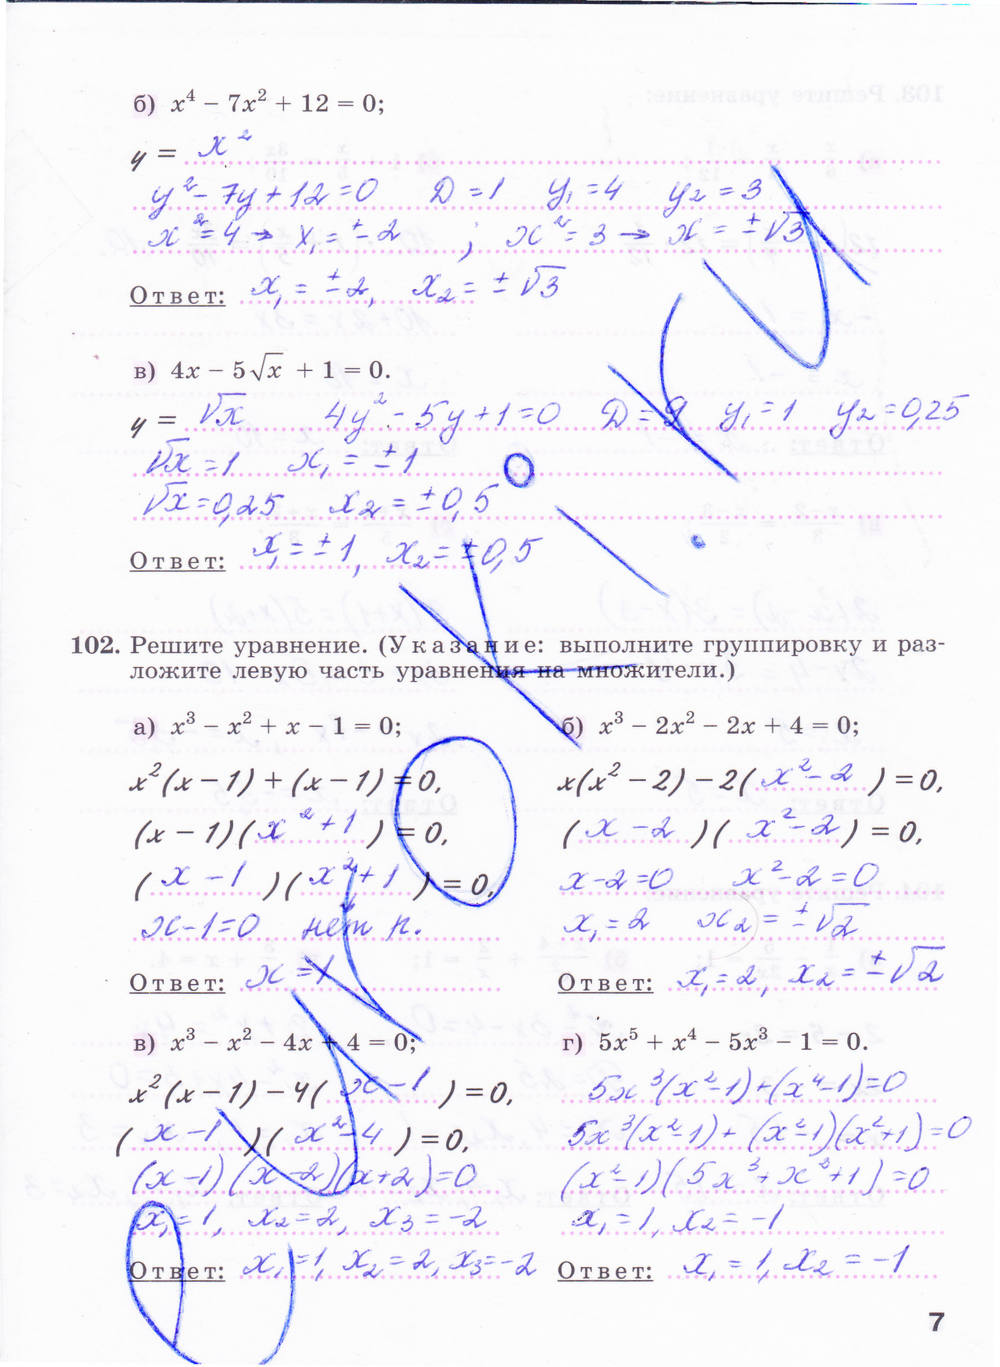 б) x⁴ − 7x² + 12 = 0;
y = x²
y² − 7y + 12 = 0 D = 1 y₁ = 4 y₂ = 3
x² = 4 → x₁ = ± 2 ; x² = 3 → x = ± √3
Ответ: x₁ = ± 2, x₂ = ± √3
в) 4x − 5√x + 1 = 0.
y = √x 4y² − 5y + 1 = 0 D = 9 y₁ = 1 y₂ = 0,25
√x = 1 x₁ = ± 1
√x = 0,25 x₂ = ± 0,5
Ответ: x₁ = ± 1, x₂ = ± 0,5
102. Решите уравнение. (Указание: выполните группировку и раз-
ложите левую часть уравнения на множители.)
а) x³ − x² + x − 1 = 0;
x²(x − 1) + (x − 1) = 0,
(x − 1)(x² + 1) = 0,
(x − 1)(x² + 1) = 0,
x − 1 = 0 нет к.
Ответ: x = 1
б) x³ − 2x² − 2x + 4 = 0;
x(x² − 2) − 2(x² − 2) = 0,
(x − 2)(x² − 2) = 0,
x − 2 = 0 x² − 2 = 0
x₁ = 2 x₂ = ± √2
Ответ: x₁ = 2, x₂ = ± √2
в) x³ − x² − 4x + 4 = 0;
x²(x − 1) − 4(x − 1) = 0,
(x − 1)(x² − 4) = 0,
(x − 1)(x − 2)(x + 2) = 0
x₁ = 1, x₂ = 2, x₃ = −2
Ответ: x₁ = 1, x₂ = 2, x₃ = −2
г) 5x⁵ + x⁴ − 5x³ − 1 = 0.
5x³(x² − 1) + (x⁴ − 1) = 0
5x³(x² − 1) + (x² − 1)(x² + 1) = 0
(x² − 1)(5x³ + x² + 1) = 0
x₁ = 1, x₂ = −1
Ответ: x₁ = 1, x₂ = −1
7